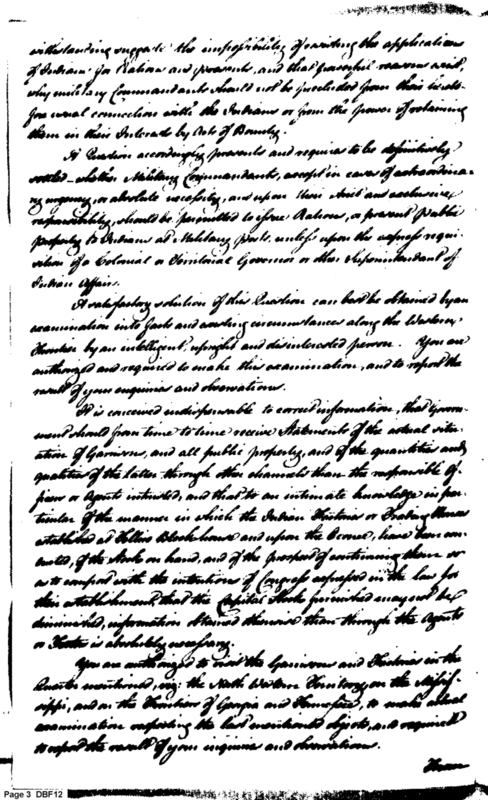 withstanding suggests the impossibility of waiting the applications
of Indians for Rations and presents, and that powerful reasons exist
why military Commandants should not be precluded from their
usual connection with the Indians or from the power of retaining
them in their Interests by Acts of Bounty.
A Question accordingly presents and requires to be definitively
settled - whether Military Commandants, except in cases of extraordina-
ry urgency, or absolute necessity, and upon their strict and exclusive
responsibility, should be permitted to issue Rations, or present public
property to Indians at Military posts, unless upon the express requi-
sition of a Colonial or Territorial Governor or other Superintendant of
Indian Affairs.
A satisfactory solution of this Question can best be obtained by an
examination into facts and existing circumstances along the Western
Frontier by an intelligent, upright and disinterested person. You are
authorized and required to make this examination, and to report the
result of your enquiries and observations.
It is conceived indispensable to correct information, that Govern-
ment should from time to time receive Statements of the actual situ-
ation of Garrisons, and all public property, and of the quantities and
qualities of the latter through other channels than the responsible Of-
ficers or Agents intrusted, and that to an intimate knowledge in par-
ticular of the manner in which the Indian Factories or Trading Houses
established at Tellico Blockhouse and upon the Oconee, have been con-
ducted, of the Stock on hand, and of the prospect of continuing them so
as to comport with the intentions of Congress expressed in the law for
their establishment, that the Capital Stock furnished may not be
diminished, information obtained otherwise than through the Agents
or Factors is absolutely necessary.
You are authorized to visit the Garrisons and Factories in the
Quarter mentioned, viz: the North Western Territory, on the Missis-
sippi, and on the Frontiers of Georgia and Tennessee, to make actual
examination respecting the last mentioned objects, and required
to report the result of your inquiries and observations.
Page 3 DBF12